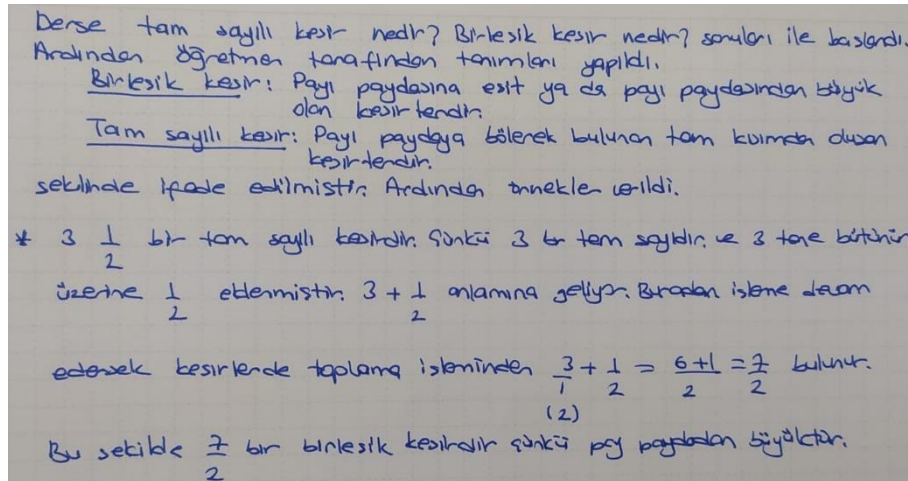 Derse tam sayılı kesir nedir? Birleşik kesir nedir? soruları ile başlandı.
Ardından öğretmen tarafından tanımları yapıldı.
Birleşik kesir: Payı paydasına eşit ya da payı paydasından büyük
olan kesirlerdir.
Tam sayılı kesir: Payı paydaya bölerek bulunan tam kısımdan oluşan
kesirlerdir.
şeklinde ifade edilmiştir. Ardından örnekler verildi.
* 3 1/2 bir tam sayılı kesirdir. Çünkü 3 bir tam sayıdır. ve 3 tane bütünün
üzerine 1/2 eklenmiştir. 3 + 1/2 anlamına geliyor. Buradan işleme devam
edersek kesirlerde toplama işleminden 3/1 + 1/2 = 6+1/2 = 7/2 bulunur.
(2)
Bu şekilde 7/2 bir birleşik kesirdir çünkü pay paydadan büyüktür.